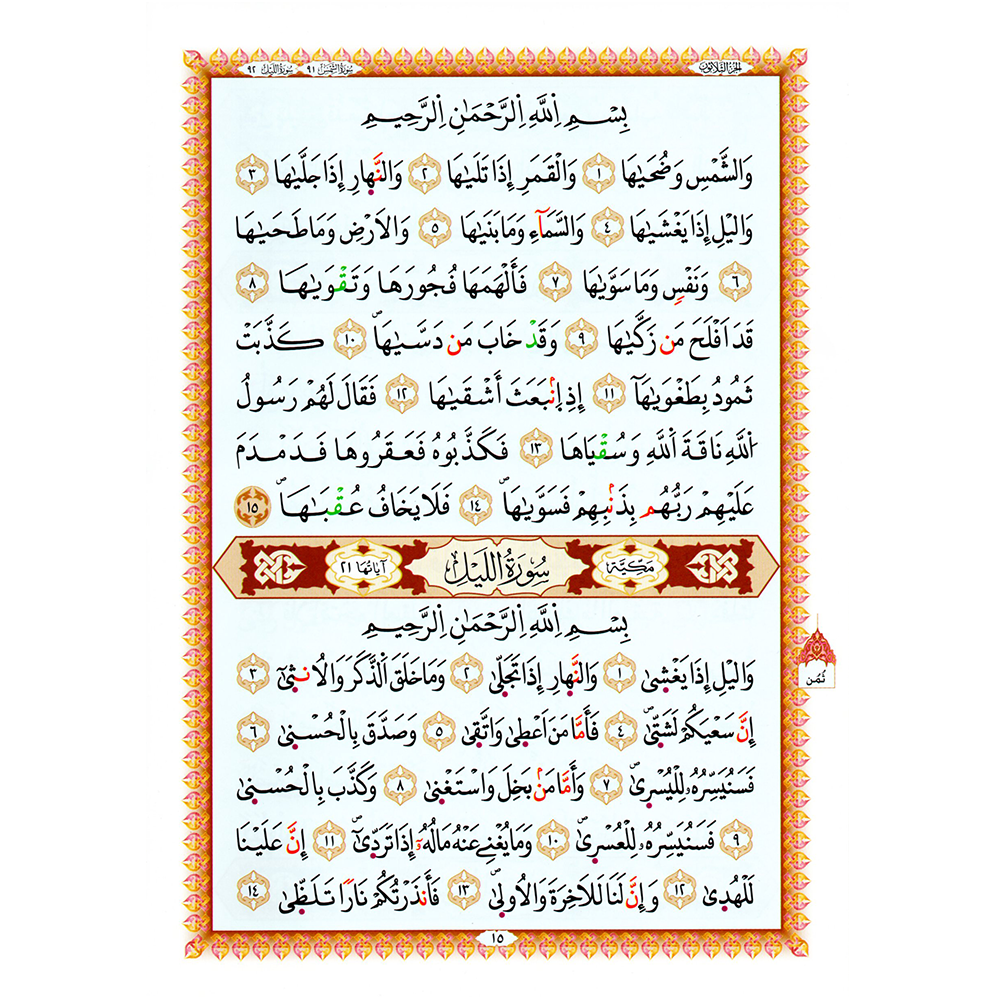 الجزء الثلاثون
سورة الشمس ٩١ سورة الليل ٩٢
بِسْمِ اِ۬للَّهِ اِ۬لرَّحْمَٰنِ اِ۬لرَّحِيمِ
وَالشَّمْسِ وَضُحَيٰهَا ١ وَالْقَمَرِ إِذَا تَلَيٰهَا ٢ وَالنَّهارِ إِذَا جَلَّيٰهَا ٣
وَاليْلِ إِذَا يَغْشَيٰهَا ٤ وَالسَّمَآءِ وَمَا بَنَيٰهَا ٥ وَالَارْضِ وَمَا طَحَيٰهَا
٦ وَنَفْسٖ وَمَا سَوَّيٰهَا ٧ فَأَلْهَمَهَا فُجُورَهَا وَتَقْوَيٰهَا ٨
قَدَ اَفْلَحَ مَن زَكَّيٰهَا ٩ وَقَدْ خَابَ مَن دَسَّيٰهَا ١٠ كَذَّبَتْ
ثَمُودُ بِطَغْوَيٰهَآ ١١ إِذِ اِنۢبَعَثَ أَشْقَيٰهَا ١٢ فَقَالَ لَهُمْ رَسُولُ
اُ۬للَّهِ نَاقَةَ اَ۬للَّهِ وَسُقْيَاهَا ١٣ فَكَذَّبُوهُ فَعَقَرُوهَا فَدَمْدَمَ
عَلَيْهِمْ رَبُّهُم بِذَنۢبِهِمْ فَسَوَّيٰهَا ١٤ فَلَا يَخَافُ عُقْبَٰهَا ١٥
مَكِّيَّة سُورَةُ اللَّيْلِ آيَاتُهَا ٢١
بِسْمِ اِ۬للَّهِ اِ۬لرَّحْمَٰنِ اِ۬لرَّحِيمِ
وَاليْلِ إِذَا يَغْشىٰ ١ وَالنَّهارِ إِذَا تَجَلّىٰ ٢ وَمَا خَلَقَ اَ۬لذَّكَرَ وَالُانثىٰٓ ٣
إِنَّ سَعْيَكُمْ لَشَتّىٰ ٤ فَأَمَّا مَنَ اَعْطىٰ وَاتَّقىٰ ٥ وَصَدَّقَ بِالْحُسْنىٰ ٦
فَسَنُيَسِّرُهُۥ لِلْيُسْرىٰ ٧ وَأَمَّا مَنۢ بَخِلَ وَاسْتَغْنىٰ ٨ وَكَذَّبَ بِالْحُسْنىٰ
٩ فَسَنُيَسِّرُهُۥ لِلْعُسْرىٰ ١٠ وَمَا يُغْنِے عَنْهُ مَالُهُۥٓ إِذَا تَرَدّىٰٓ ١١ إِنَّ عَلَيْنَا
لَلْهُدىٰ ١٢ وَإِنَّ لَنَا لَلَاخِرَةَ وَالُاولىٰ ١٣ فَأَنذَرْتُكُمْ نَارًا تَلَظّىٰ ١٤
ثُمُن
١٥